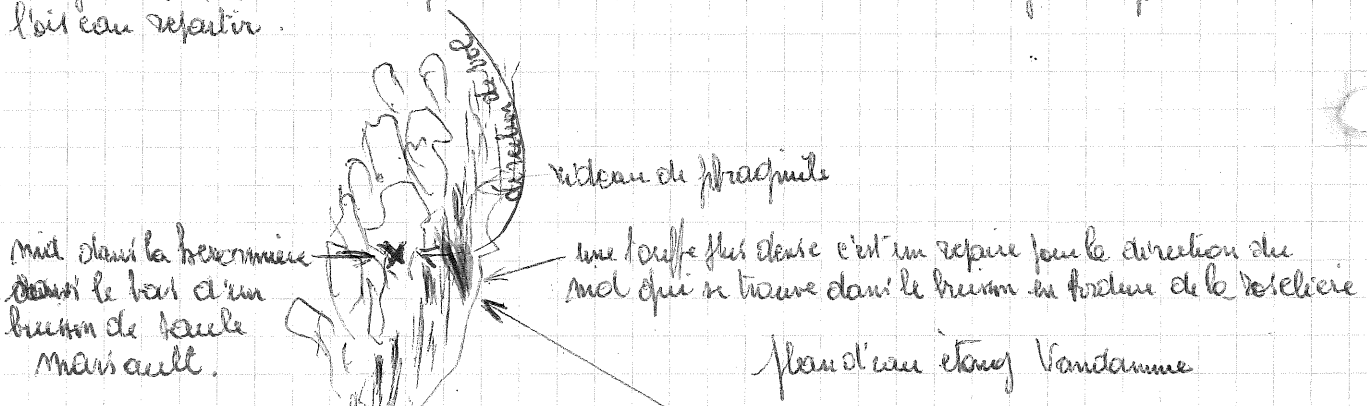 l'oiseau repartir.
direction de vol
rideau de phragmite
nid dans la heronnière
dans le bas d'un
buisson de saule
marsault.
une touffe plus dense c'est un repaire pour la direction du
nid qui se trouve dans le buisson en bordure de la roselière
plan d'eau étang Vandamme